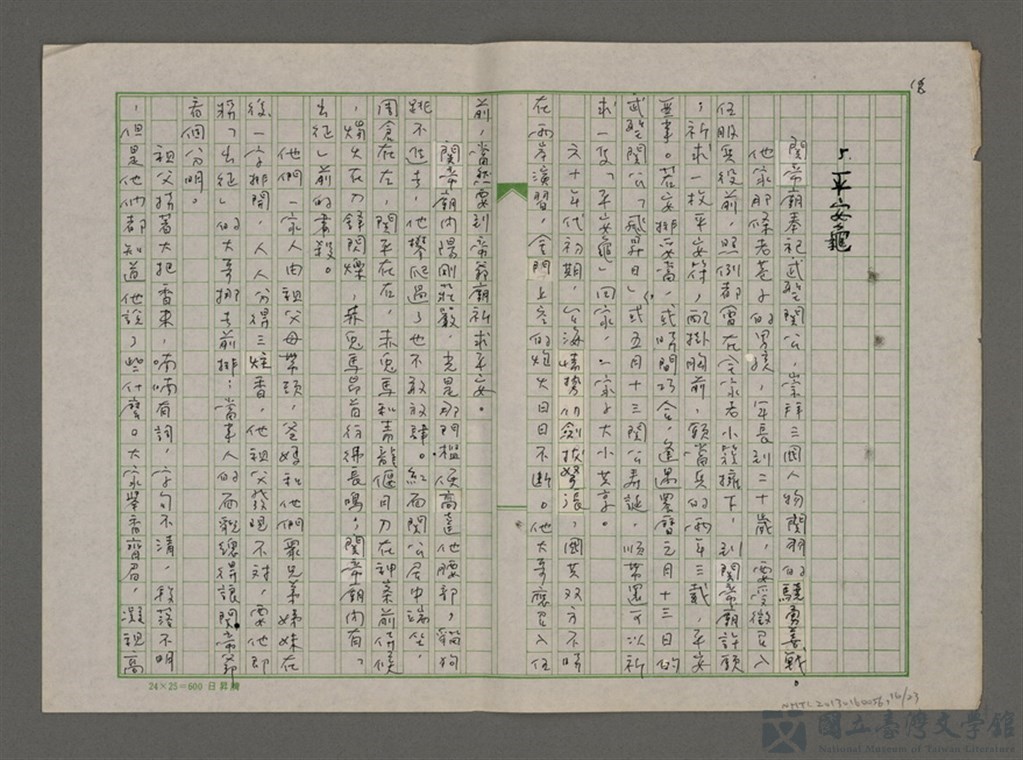 18
5.平安龜
關帝廟奉祀武聖關公，崇拜三國人物關羽的驍勇善戰。
他家那條老巷子的男孩，年長到二十歲，要受徵召入
伍服兵役前，照例都會在全家老小簇擁下，到關帝廟許願
，祈求一枚平安符，配掛胸前，願當兵的兩年三載，平安
無事。若安排妥當，或時間巧合，逢遇農曆元月十三日的
武聖關公「飛昇日」，或五月十三關公壽誕，順帶還可以祈
求一隻「平安龜」回家，一家子大小共享。
六十年代初期，台海情勢仍劍拔弩張，國共双方不時
在兩岸演習，金門上空的炮火日日不斷。他大哥應召入伍
前，當然要到帝爺廟祈求平安。
關帝廟內陽剛莊嚴，光是那門檻便高達他腰部，貓狗
跳不進去，他攀爬過了也不敢放肆。紅面關公居中端坐，
周倉在左，關平在右，赤兔馬和青龍偃月刀在神桌前侍候
，燭火在刀鋒閃爍，赤兔馬昂首彷彿長鳴，關帝廟內有「
出征」前的肅殺。
他們一家人由祖父母帶頭，爸媽和他們眾兄弟姊妹在
後一字排開，人人分得三炷香，他祖父發現不對，要他即
將「出征」的大哥挪去前排：當事人的面貌總得讓關帝爺
看個分明。
祖父捻著大把香束，喃喃有詞，字句不清，段落不明
，但是他們都知道他說了些什麼。大家舉香齊眉，凝視高
24×25=600 日昇牌
NMTL20130160056,18/23
國立臺灣文學館
National Museum of Taiwan Literature